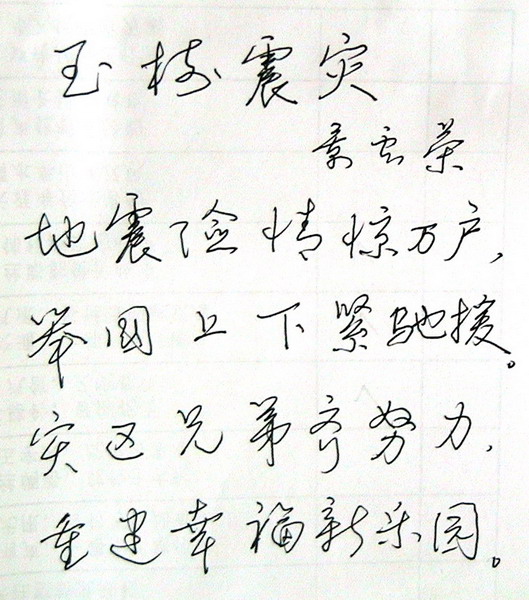 玉树震灾
景云荣
地震险情惊万户,
举国上下紧驰援。
灾区兄弟齐努力,
重建幸福新乐园。